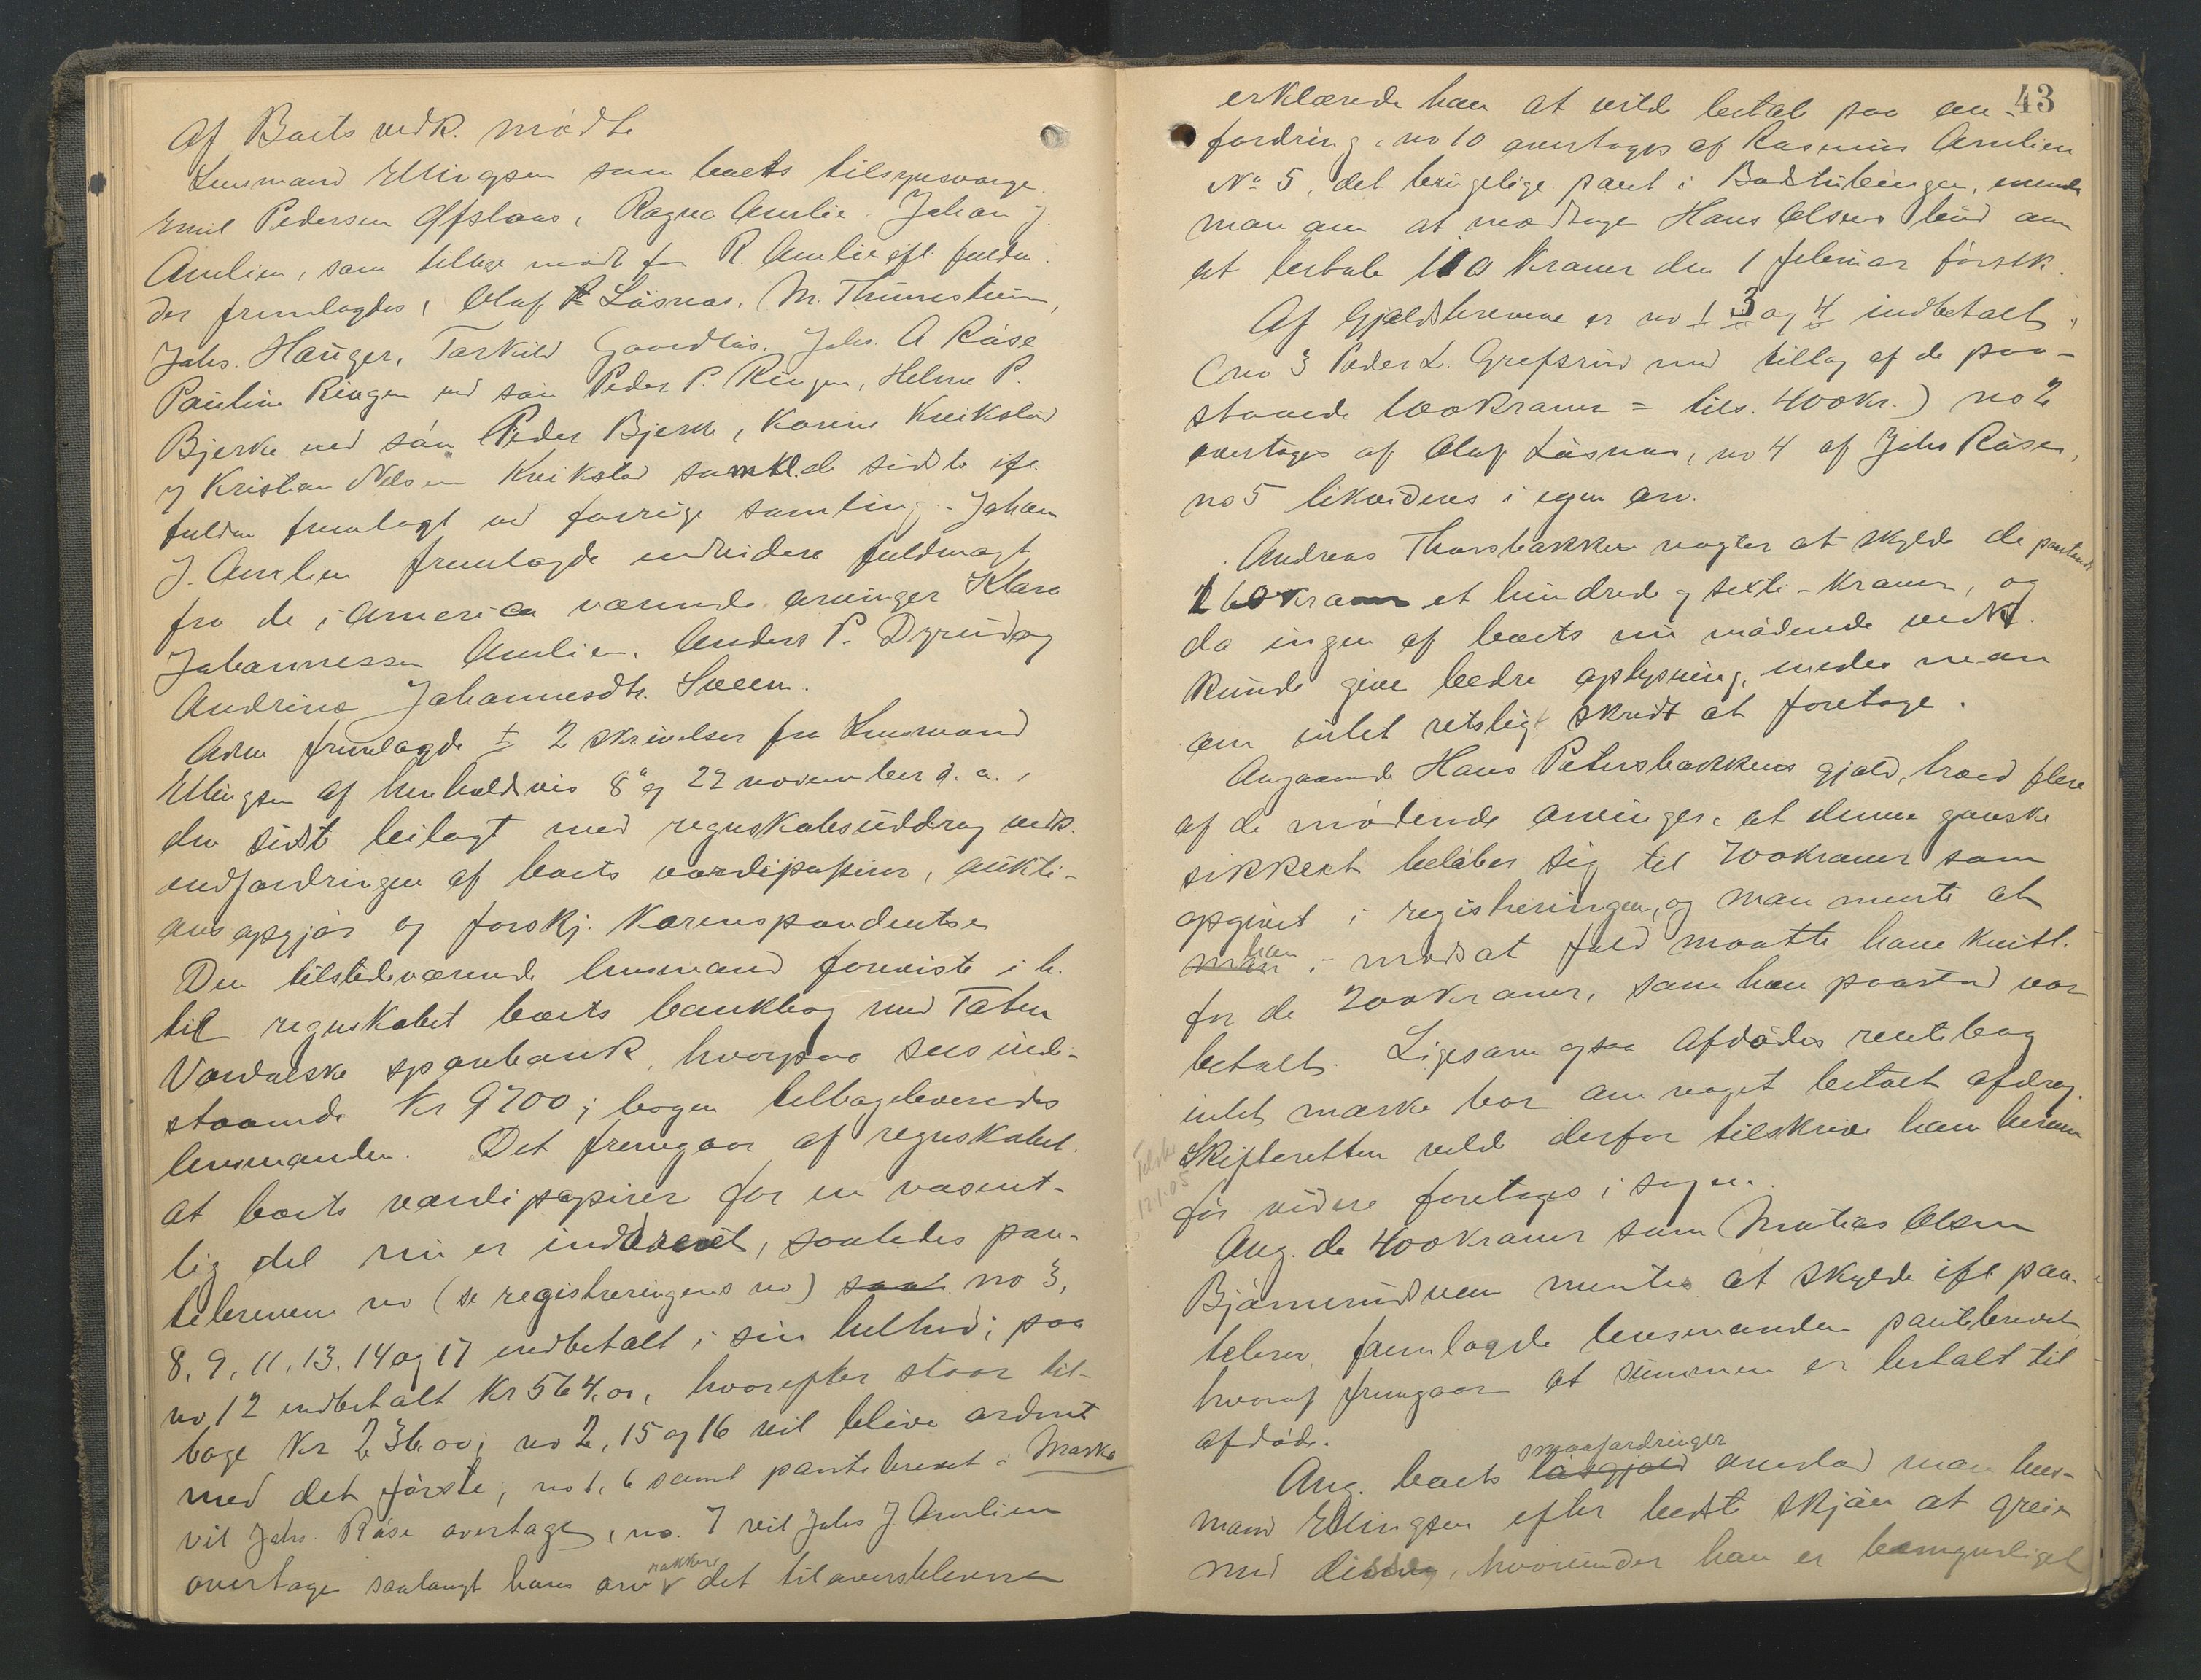 Af Boets vedk. mødte
Lensmand Ellingsen som boets tilsynsværge.
Emil Pedersen Ofslaas, Ragna Amlie. Johan J.
Amlien, som tillige mødte for R. Amlie ifl. fuldm.
der fremlagdes, Olaf Løsnæs. M. Thunestuen,
Johs. Hauger, Torkild Gaardløs. Johs. A. Røise
Pauline Ringen ved søn Peder P. Ringen, Helene P.
Bjerke ved søn Peder Bjerke, Karine Kvikstad
og Kristian Nelsen Kvikstad samtl. de sidste ifl.
fuldm fremlagt ved forrige samling. Johan
J. Amlien fremlagde endvidere fuldmagt
fra de i America værende arvinger Klara
Johannessen Amlien. Anders P. Dyrud og
Andrine Johannesdtr. Sveen.
Adm fremlagde 2 skrivelser fra Lensmand
Ellingsen af henholdsvis 8 og 22 november d. a.,
den sidste bilagt med regnskabsuddrag vedk.
indfordringen af boets værdipapirer, aukti-
onsopgjør og forskj. Korrespondentse
Den tilstedeværende lensmand foreviste i h.
til regnskabet boets bankbog med Toten
Vardalske sparebank, hvorpaa sees inde-
staaende Kr 9700; bogen tilbageleveredes
lensmanden. Det fremgaar af regnskabet
at boets værdipapirer for en væsent-
lig del nu er inddrevet, saaledes pan-
tebrevene no (se registreringens no) saat no 3,
8, 9, 11, 13, 14 og 17 indbetalt i sin helhed; paa
no 12 indbetalt Kr 564,00, hvorefter staar til-
bage Kr 236,00; no 2, 15 og 16 vil blive ordnet
med det første; no 1, 6 samt pantebrevet i Marka
vil Johs. Røise overtage, no. 7 vil Johs J. Amlien
overtage saalangt hans arv rækker det tiloversblevne
43
erklærede han at vilde betale paa an-
fordring, no 10 overtages af Rasmus Amlien
No 5, det tvingelige pant i Badstubengen, enede
man om at modtage Hans Olsens bud om
at betale 110 kroner den 1 februar førstk.
Af Gjældsbrevene er no 1 3 og 4 indbetalt,
(no 3 Peder L. Grefsrud med tillæg af de paa-
staaede 100 kroner = tils. 400 kr.) no 2
overtages af Olaf Løsnæs, no 4 af Johs Røise,
no 5 likvideres i egen arv.
Andreas Thorsbakken nægter at skylde de paastaaede
160 kroner et hundrede og sexti - kroner, og
da ingen af boets nu mødende vedk.
kunde give bedre oplysning, enedes man
om intet retsligt skridt at foretage.
Angaaende Hans Petersbakkens gjæld, hævd flere
af de mødende arvinger, at denne ganske
sikkert beløber sig til 700 kroner som
opgivet i registreringen, og man mente at
man han i modsat fald maatte have kvitt.
for de 200 kroner, som han paastod var
betalt. Ligesom ogsaa Afdødes rentebog
intet mærke bar om noget betalt afdrag.
Skifteretten vilde derfor tilskrive ham herom
før videre foretages i sagen.
Tilskr
12.1.05
Ang. de 400 kroner som Matias Olsen
Bjørnerudsveen mentes at skylde ifl pan-
tebrev, fremlagde lensmanden pantebrevet,
hvoraf fremgaar at summen er betalt til
afdøde.
smaafordringer
Ang. boets løsgjæld overlod man lens-
mand Ellingsen efter bedste skjøn at greie
med disse, hvorunder han er bemyndiget